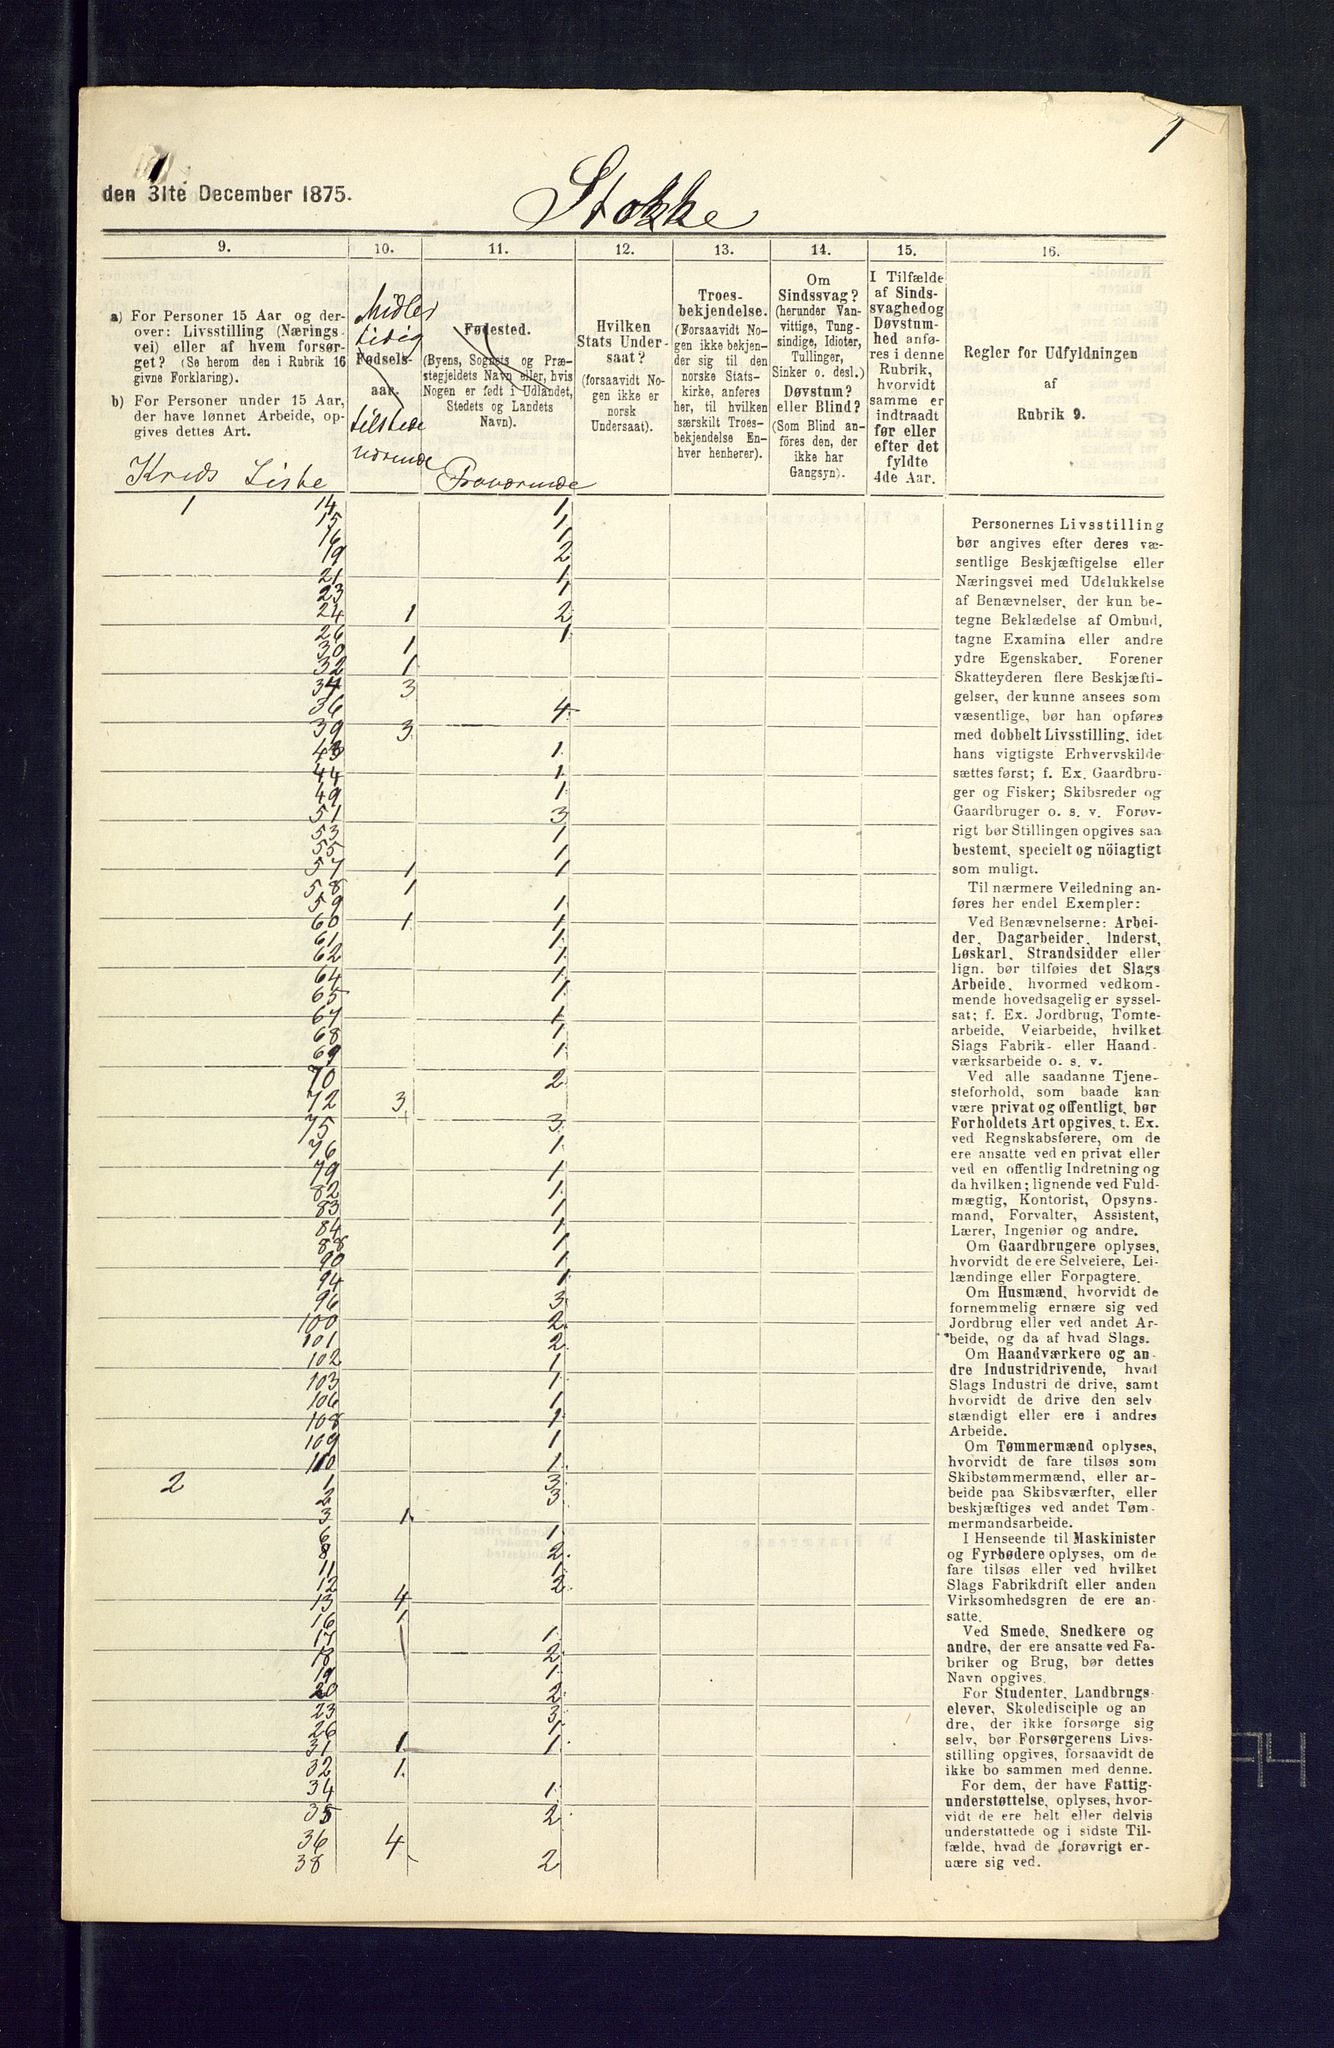 1
den 31te December 1875.
Stokke
9. 10. 11. 12. 13. 14. 15. 16.
a) For Personer 15 Aar og der-
over: Livsstilling (Nærings-
vei) eller af hvem forsør-
get? (Se herom den i Rubrik 16
givne Forklaring).
b) For Personer under 15 Aar,
der have lønnet Arbeide, op-
gives dettes Art.
Kreds Liste
Midler
tidig
Fødsels-
aar.
tilstede
værende
Fødested.
(Byens, Sognets og Præ-
stegjeldets Navn eller, hvis
Nogen er født i Udlandet,
Stedets og Landets
Navn).
Fraværende
Hvilken
Stats Under-
saat?
(forsaavidt No-
gen ikke er
norsk
Undersaat).
Troes-
bekjendelse.
(Forsaavidt No-
gen ikke bekjen-
der sig til den
norske Stats-
kirke, anføres
her, til hvilken
særskilt Troes-
bekjendelse En-
hver henhører).
Om
Sindssvag?
(herunder Van-
vittige, Tung-
sindige, Idioter,
Tullinger,
Sinker o. desl.)
Døvstum?
eller Blind?
(Som Blind an-
føres den, der
ikke har
Gangsyn).
I Tilfælde
af Sinds-
svaghed og
Døvstum-
hed anfø-
res i denne
Rubrik,
hvorvidt
samme er
indtraadt
før eller
efter det
fyldte
4de Aar.
Regler for Udfyldningen
af
Rubrik 9.
1 14 1
15 1
16 1
19 2
21 1
23 1
24 1 2
26 1
30 1
32 1
34 3
36 4
39 3
43 1
44 1
49 1
51 3
53 1
55 1
57 1 1
58 1
59 1
60 1 1
61 1
62 1
64 1
65 1
67 1
68 1
69 1
70 2
72 3
75 3
76 1
79 1
82 1
83 1
84 1
88 1
90 1
94 1
96 3
100 2
101 2
102 1
103 1
106 1
108 1
109 1
110 1
2 1 3
2 3
3 1
6 1
8 2
11 1
12 2
13 4
16 1
17 1
18 2
19 1
20 2
23 3
26 1
31 1 1
32 1
34 1
35 2
36 4
38 2
Personernes Livsstilling
bør angives efter deres væ-
sentlige Beskjæftigelse eller
Næringsvei med Udelukkelse
af Benævnelser, der kun be-
tegne Beklædelse af Ombud,
tagne Examina eller andre
ydre Egenskaber. Forener
Skatteyderen flere Beskjæfti-
gelser, der kunne ansees som
væsentlige, bør han opføres
med dobbelt Livsstilling, idet
hans vigtigste Erhvervskilde
sættes først; f. Ex. Gaardbru-
ger og Fisker; Skibsreder og
Gaardbruger o. s. v. Forøv-
rigt bør Stillingen opgives saa
bestemt, specielt og nöiagtigt
som muligt.
Til nærmere Veiledning an-
føres her endel Exempler:
Ved Benævnelserne: Arbei-
der, Dagarbeider, Inderst,
Løskarl, Strandsidder eller
lign. bør tilføies det Slags
Arbeide, hvormed vedkom-
mende hovedsagelig er syssel-
sat; f. Ex. Jordbrug, Tomte-
arbeide, Veiarbeide, hvilket
Slags Fabrik- eller Haand-
værksarbeide o. s. v.
Ved alle saadanne Tjene-
steforhold, som baade kan
være privat og offentligt, bør
Forholdets Art opgives, t. Ex.
ved Regnskabsførere, om de
ere ansatte ved en privat eller
ved en offentlig Indretning og
da hvilken; lignende ved Fuld-
mægtig, Kontorist, Opsyns-
mand, Forvalter, Assistent,
Lærer, Ingeniør og andre.
Om Gaardbrugere oplyses,
hvorvidt de ere Selveiere, Lei-
lændinge eller Forpagtere.
Om Husmænd, hvorvidt de
fornemmelig ernære sig ved
Jordbrug eller ved andet Ar-
beide, og da af hvad Slags.
Om Haandværkere og an-
dre Industridrivende, hvad
Slags Industri de drive, samt
hvorvidt de drive den selv-
stændigt eller ere i andres
Arbeide.
Om Tømmermænd oplyses,
hvorvidt de fare tilsøs som
Skibstømmermænd, eller ar-
beide paa Skibsværfter, eller
beskjæftiges ved andet Tøm-
mermandsarbeide.
I Henseende til Maskinister
og Fyrbødere oplyses, om de
fare tilsøs eller ved hvilket
Slags Fabrikdrift eller anden
Virksomhedsgren de ere an-
satte.
Ved Smede, Snedkere og
andre, der ere ansatte ved Fa-
briker og Brug, bør dettes
Navn opgives.
For Studenter, Landbrugs-
elever, Skoledisciple og an-
dre, der ikke forsørge sig
selv, bør Forsørgerens Livs-
stilling opgives, forsaavidt de
ikke bo sammen med denne.
For dem, der have Fattig-
understøttelse, oplyses, hvor-
vidt de ere helt eller delvis
understøttede og i sidste Til-
fælde, hvad de forøvrigt er-
nære sig ved.